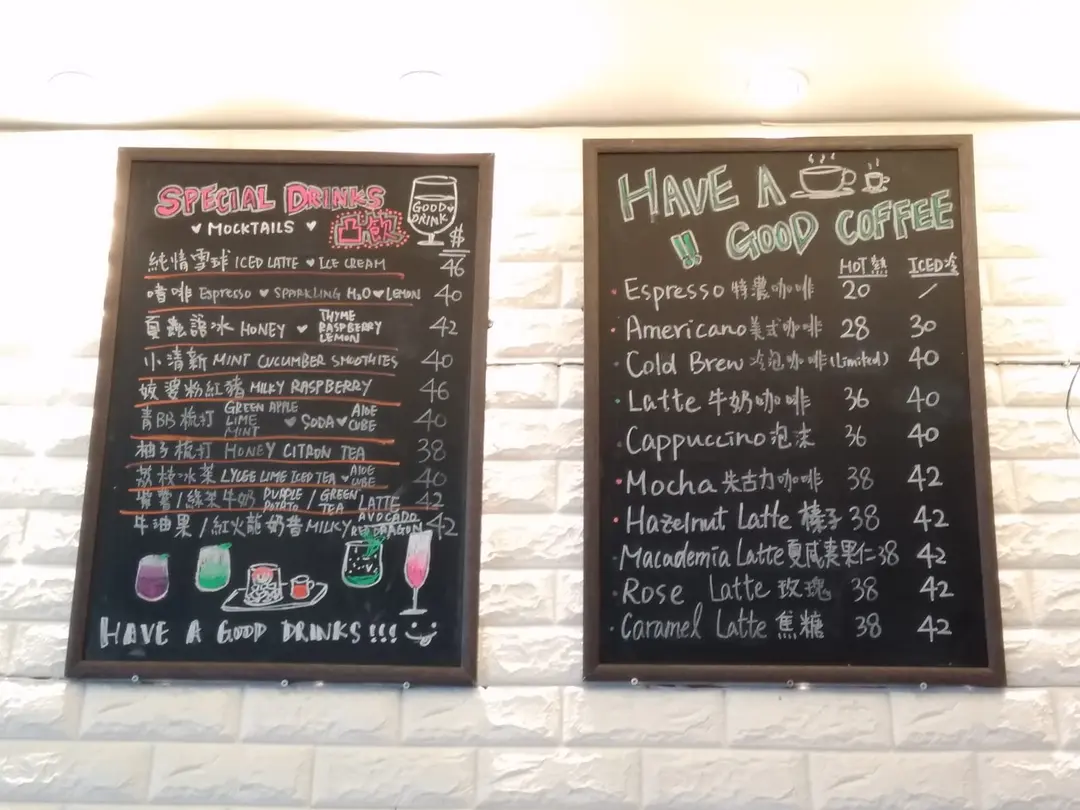 SPECIAL DRINKS
♥ MOCKTAILS ♥
GOOD DRINK
$
純情雪球 ICED LATTE ♥ ICE CREAM 46
嗜啡 Espresso ♥ SPARKLING H₂O ♥ LEMON 40
夏蟲語冰 HONEY ♥ THYME RASPBERRY LEMON 42
小清新 MINT CUCUMBER SMOOTHIES 40
婆粉紅豬 MILKY RASPBERRY 46
青BB梳打 GREEN APPLE LIME MINT ♥ SODA ♥ ALOE CUBE 40
柚子梳打 HONEY CITRON TEA 38
荔枝冰茶 LYCEE LIME ICED TEA ♥ ALOE CUBE 40
紫薯/綠茶牛奶 PURPLE POTATO / GREEN TEA LATTE 42
牛油果/紅火龍奶昔 MILKY AVOCADO RED DRAGON 42
HAVE A GOOD DRINKS!!!
HAVE A
!! GOOD COFFEE
HOT 熱 ICED 冷
Espresso 特濃咖啡 20 /
Americano 美式咖啡 28 30
Cold Brew 冷泡咖啡 (Limited) 40
Latte 牛奶咖啡 36 40
Cappuccino 泡沫 36 40
Mocha 朱古力咖啡 38 42
Hazelnut Latte 榛子 38 42
Macademia Latte 夏威夷果仁 38 42
Rose Latte 玫瑰 38 42
Caramel Latte 焦糖 38 42